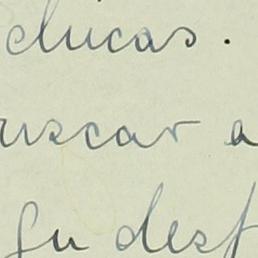 chicas.
uscar a
su desf